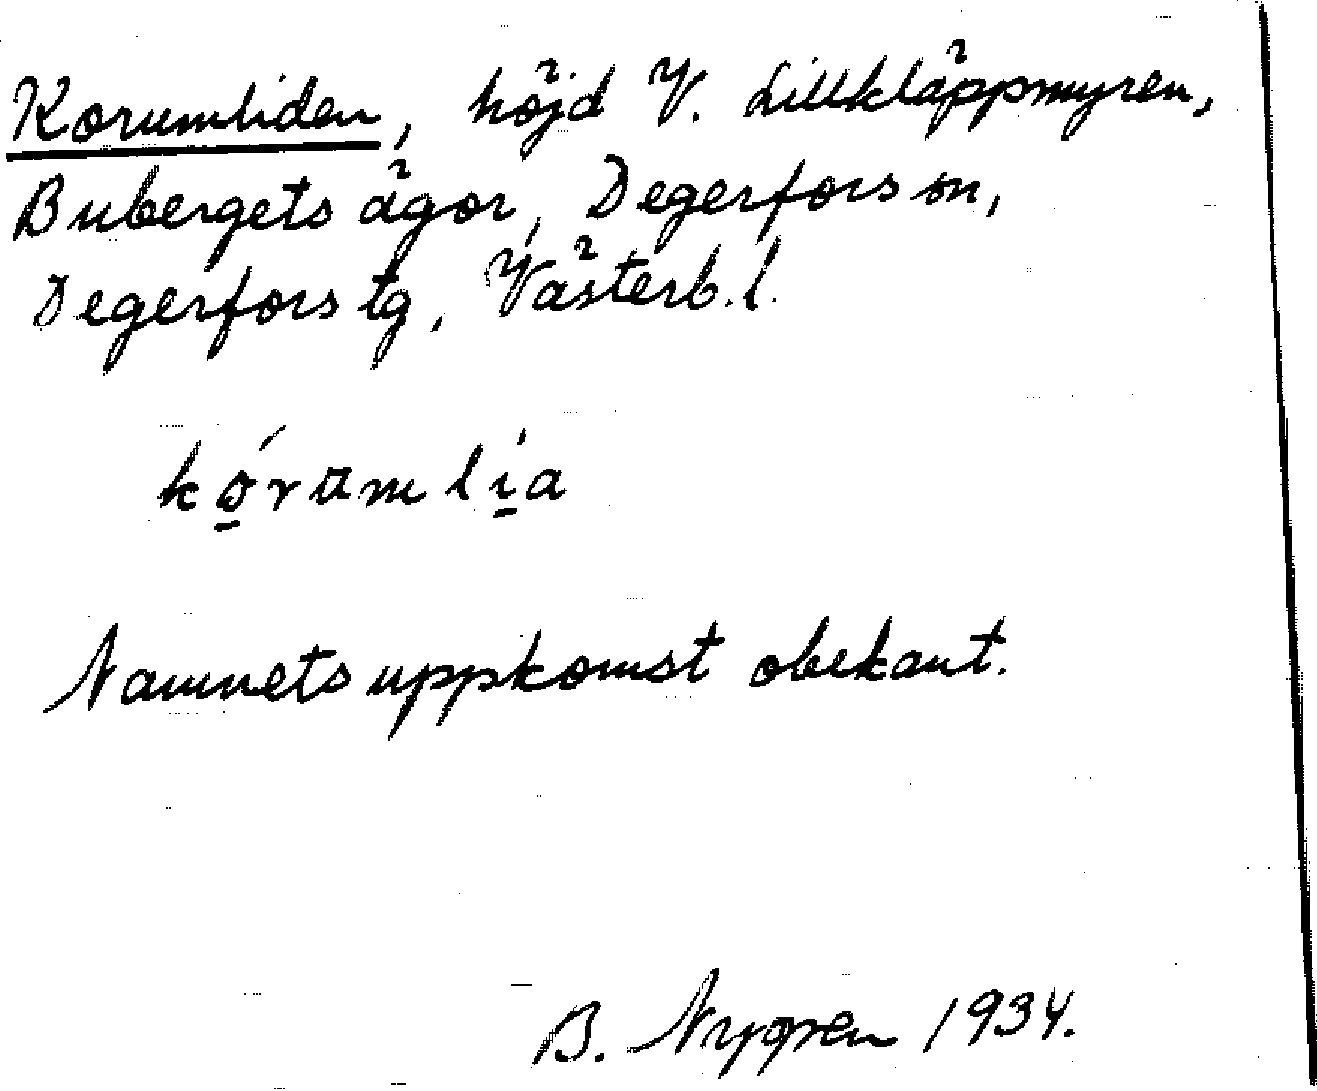 Korumliden, höjd V. Lillkläppmyren,
Bubergets ägor, Degerfors sn,
Degerfors tg, Västerb. l.
kó̱rumlí̱a
Namnets uppkomst obekant.
B. Nygren 1934.